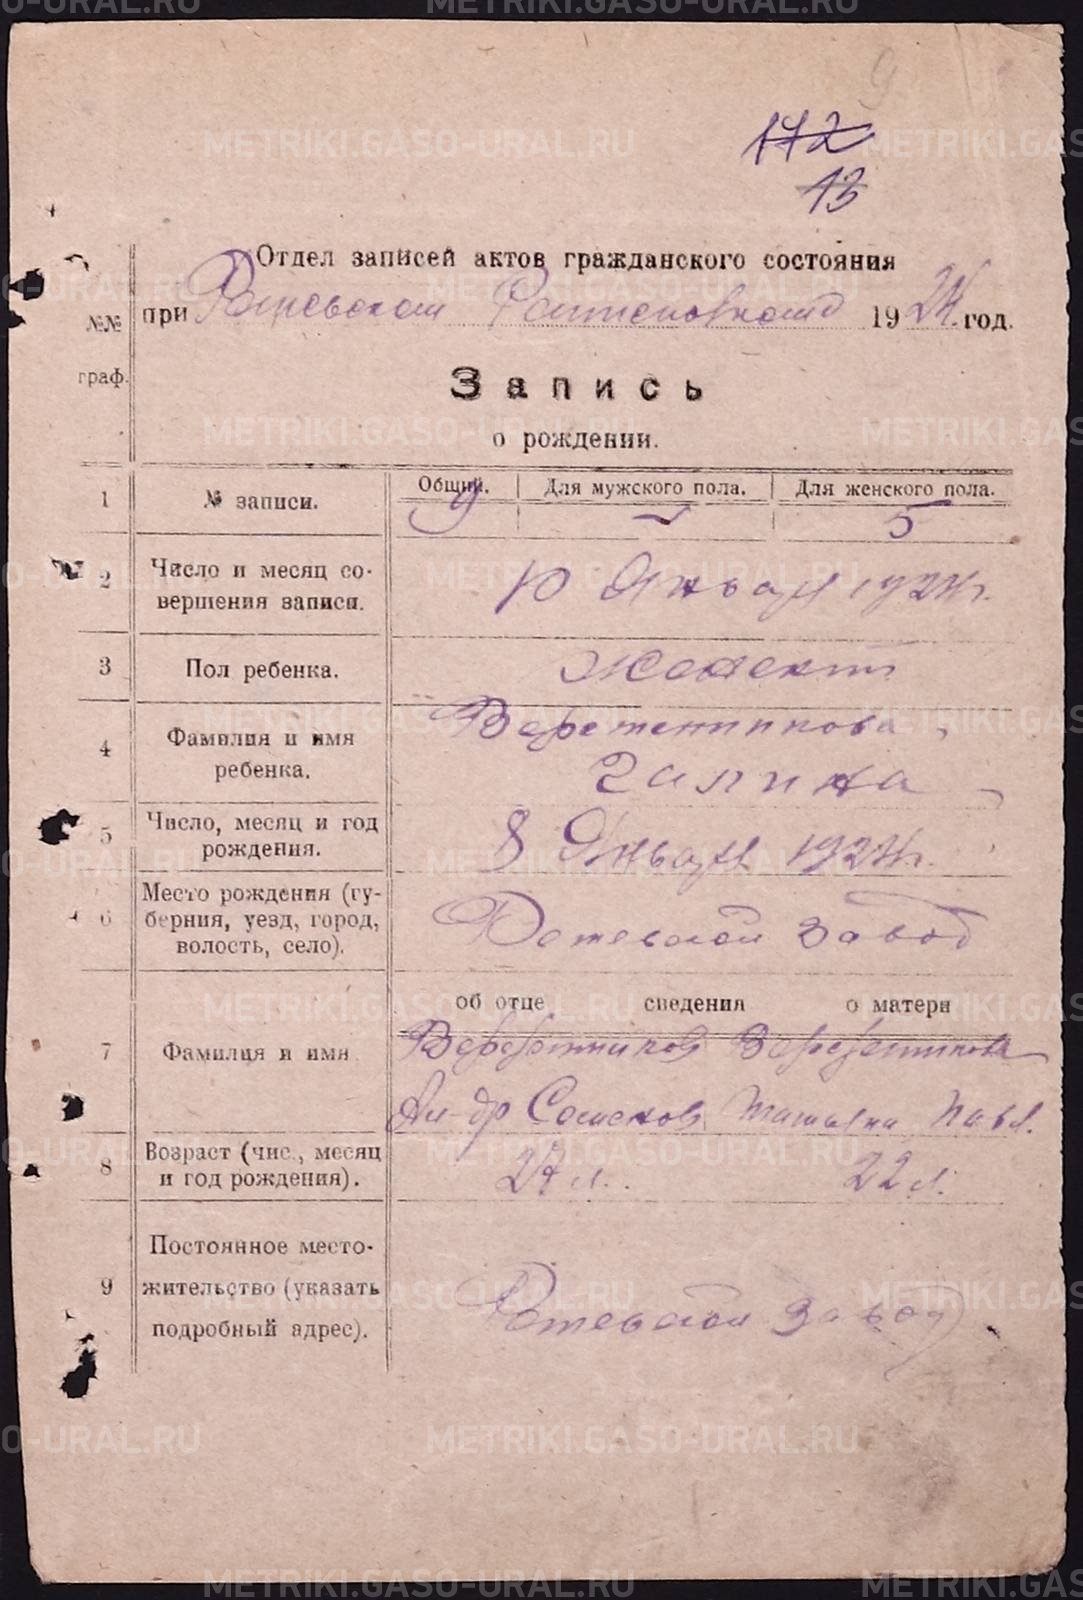 9
172
13
Отдел записей актов гражданского состояния
при Режевском 1924 год.
№№ граф.
Запись
о рождении.
1 № записи. Общий. Для мужского пола. Для женского пола.
9 – 5
2 Число и месяц со-
вершения записи. 10 Января 1924 г.
3 Пол ребенка. Женский
4 Фамилия и имя
ребенка. Веретенникова
Галина
5 Число, месяц и год
рождения. 8 Января 1924 г.
6 Место рождения (гу-
берния, уезд, город,
волость, село). Режевской завод
об отце сведения о матери
7 Фамилия и имя Веретенников Веретенникова
Ал-др Семенов Татьяна Павл.
8 Возраст (чис., месяц
и год рождения). 27 л. 22 л.
9 Постоянное место-
жительство (указать
подробный адрес). Режевской завод
METRIKI.GASO-URAL.RU